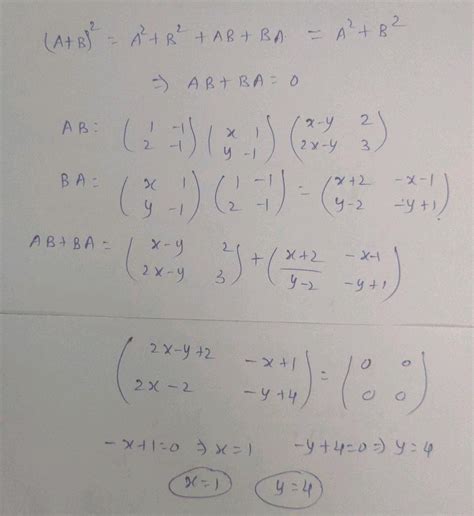 (A+B)² = A² + B² + AB + BA = A² + B²
⇒ AB + BA = 0
AB: (1 -1; 2 -1) (x 1; y -1) (x-y 2; 2x-y 3)
BA: (x 1; y -1) (1 -1; 2 -1) = (x+2 -x-1; y-2 -y+1)
AB+BA = (x-y 2; 2x-y 3) + (x+2 -x-1; y-2 -y+1)
(2x-y+2 -x+1; 2x-2 -y+4) = (0 0; 0 0)
-x+1=0 ⇒ x=1 -y+4=0 ⇒ y=4
x=1 y=4